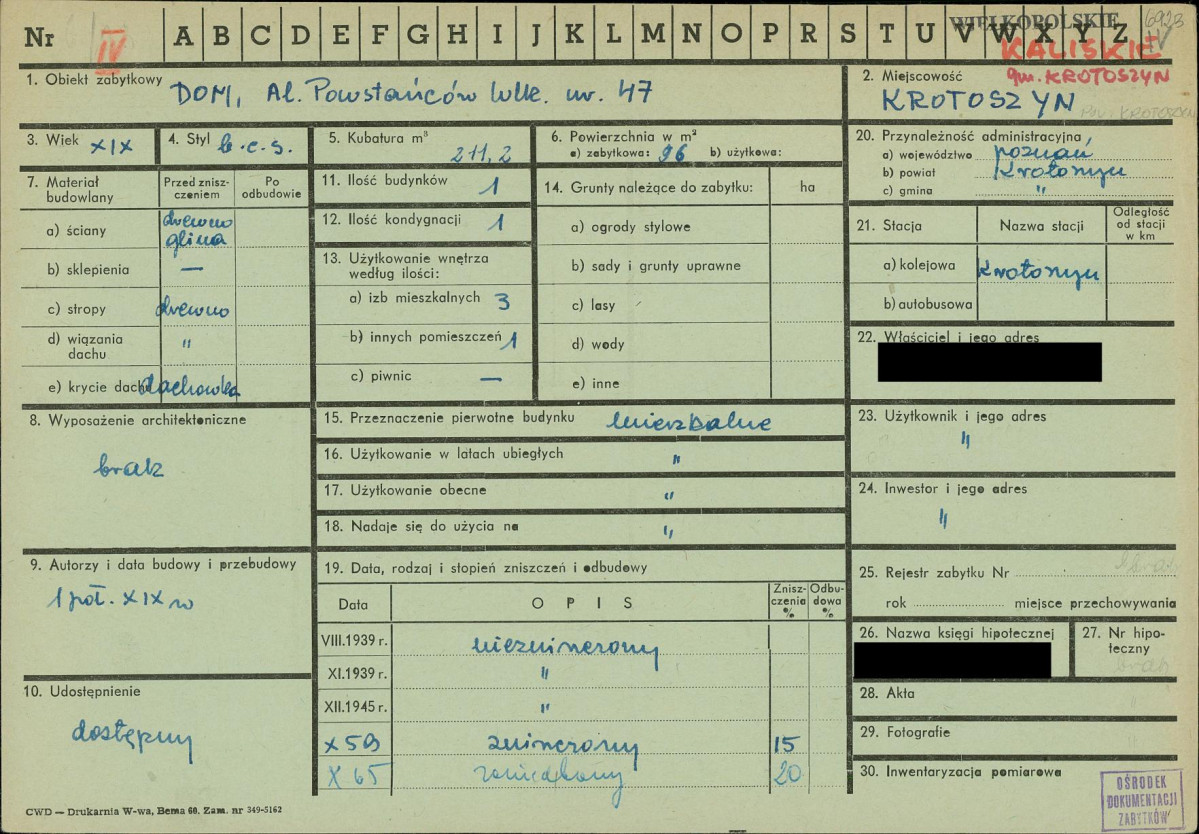 Nr IV A B C D E F G H I J K L M N O P R S T U V W X Y Z
WIELKOPOLSKIE 6923
KALISKIE IV
gm. KROTOSZYN
1. Obiekt zabytkowy DOM, Al. Powstańców Wlk. nr. 47
2. Miejscowość
KROTOSZYN
Pow. KROTOSZYN
3. Wiek XIX
4. Styl b.c.s.
5. Kubatura m³
211,2
6. Powierzchnia w m²
a) zabytkowa: 96 b) użytkowa:
7. Materiał budowlany
Przed zniszczeniem
Po odbudowie
a) ściany drewno glina
b) sklepienia —
c) stropy drewno
d) wiązania dachu "
e) krycie dachu dachówka
8. Wyposażenie architektoniczne
brak
9. Autorzy i data budowy i przebudowy
1 poł. XIX w
10. Udostępnienie
dostępny
11. Ilość budynków 1
12. Ilość kondygnacji 1
13. Użytkowanie wnętrza według ilości:
a) izb mieszkalnych 3
b) innych pomieszczeń 1
c) piwnic —
14. Grunty należące do zabytku: ha
a) ogrody stylowe
b) sady i grunty uprawne
c) lasy
d) wody
e) inne
15. Przeznaczenie pierwotne budynku mieszkalne
16. Użytkowanie w latach ubiegłych "
17. Użytkowanie obecne "
18. Nadaje się do użycia na "
19. Data, rodzaj i stopień zniszczeń i odbudowy
Data OPIS Zniszczenia % Odbudowa %
VIII.1939 r. niezniszczony
XI.1939 r. "
XII.1945 r. "
X 59 zniszczony 15
X 65 zaniedbany 20
20. Przynależność administracyjna
a) województwo poznań
b) powiat Krotoszyn
c) gmina "
21. Stacja Nazwa stacji Odległość od stacji w km
a) kolejowa Krotoszyn
b) autobusowa
22. Właściciel i jego adres
23. Użytkownik i jego adres
"
24. Inwestor i jego adres
"
25. Rejestr zabytku Nr
rok miejsce przechowywania
26. Nazwa księgi hipotecznej
27. Nr hipoteczny
brak
28. Akta
29. Fotografie
30. Inwentaryzacja pomiarowa
OŚRODEK
DOKUMENTACJI
ZABYTKÓW
CWD — Drukarnia W-wa, Bema 60. Zam. nr 349-5162